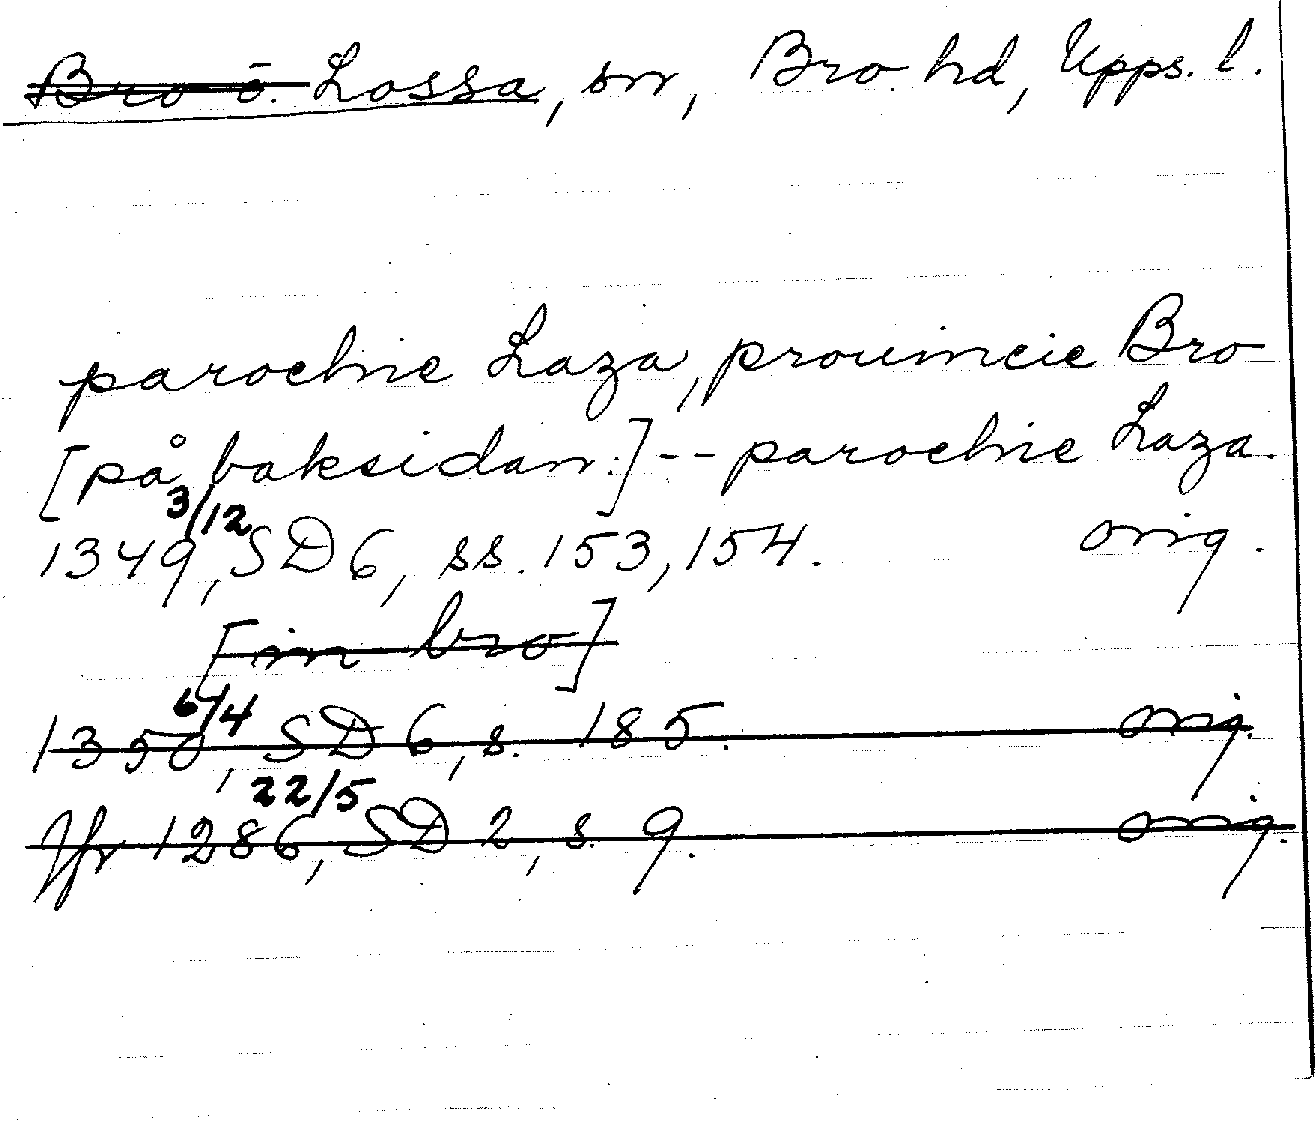 Bro o. Lossa, sn, Bro hd, Upps. l.
parochie Laza, prouincie Bro
[på baksidan:] -- parochie Laza.
1349 3/12, SD 6, ss. 153, 154. orig.
[in bro]
1350 6/4, SD 6, s. 185. orig.
Jfr 1286 22/5, SD 2, s. 9. orig.